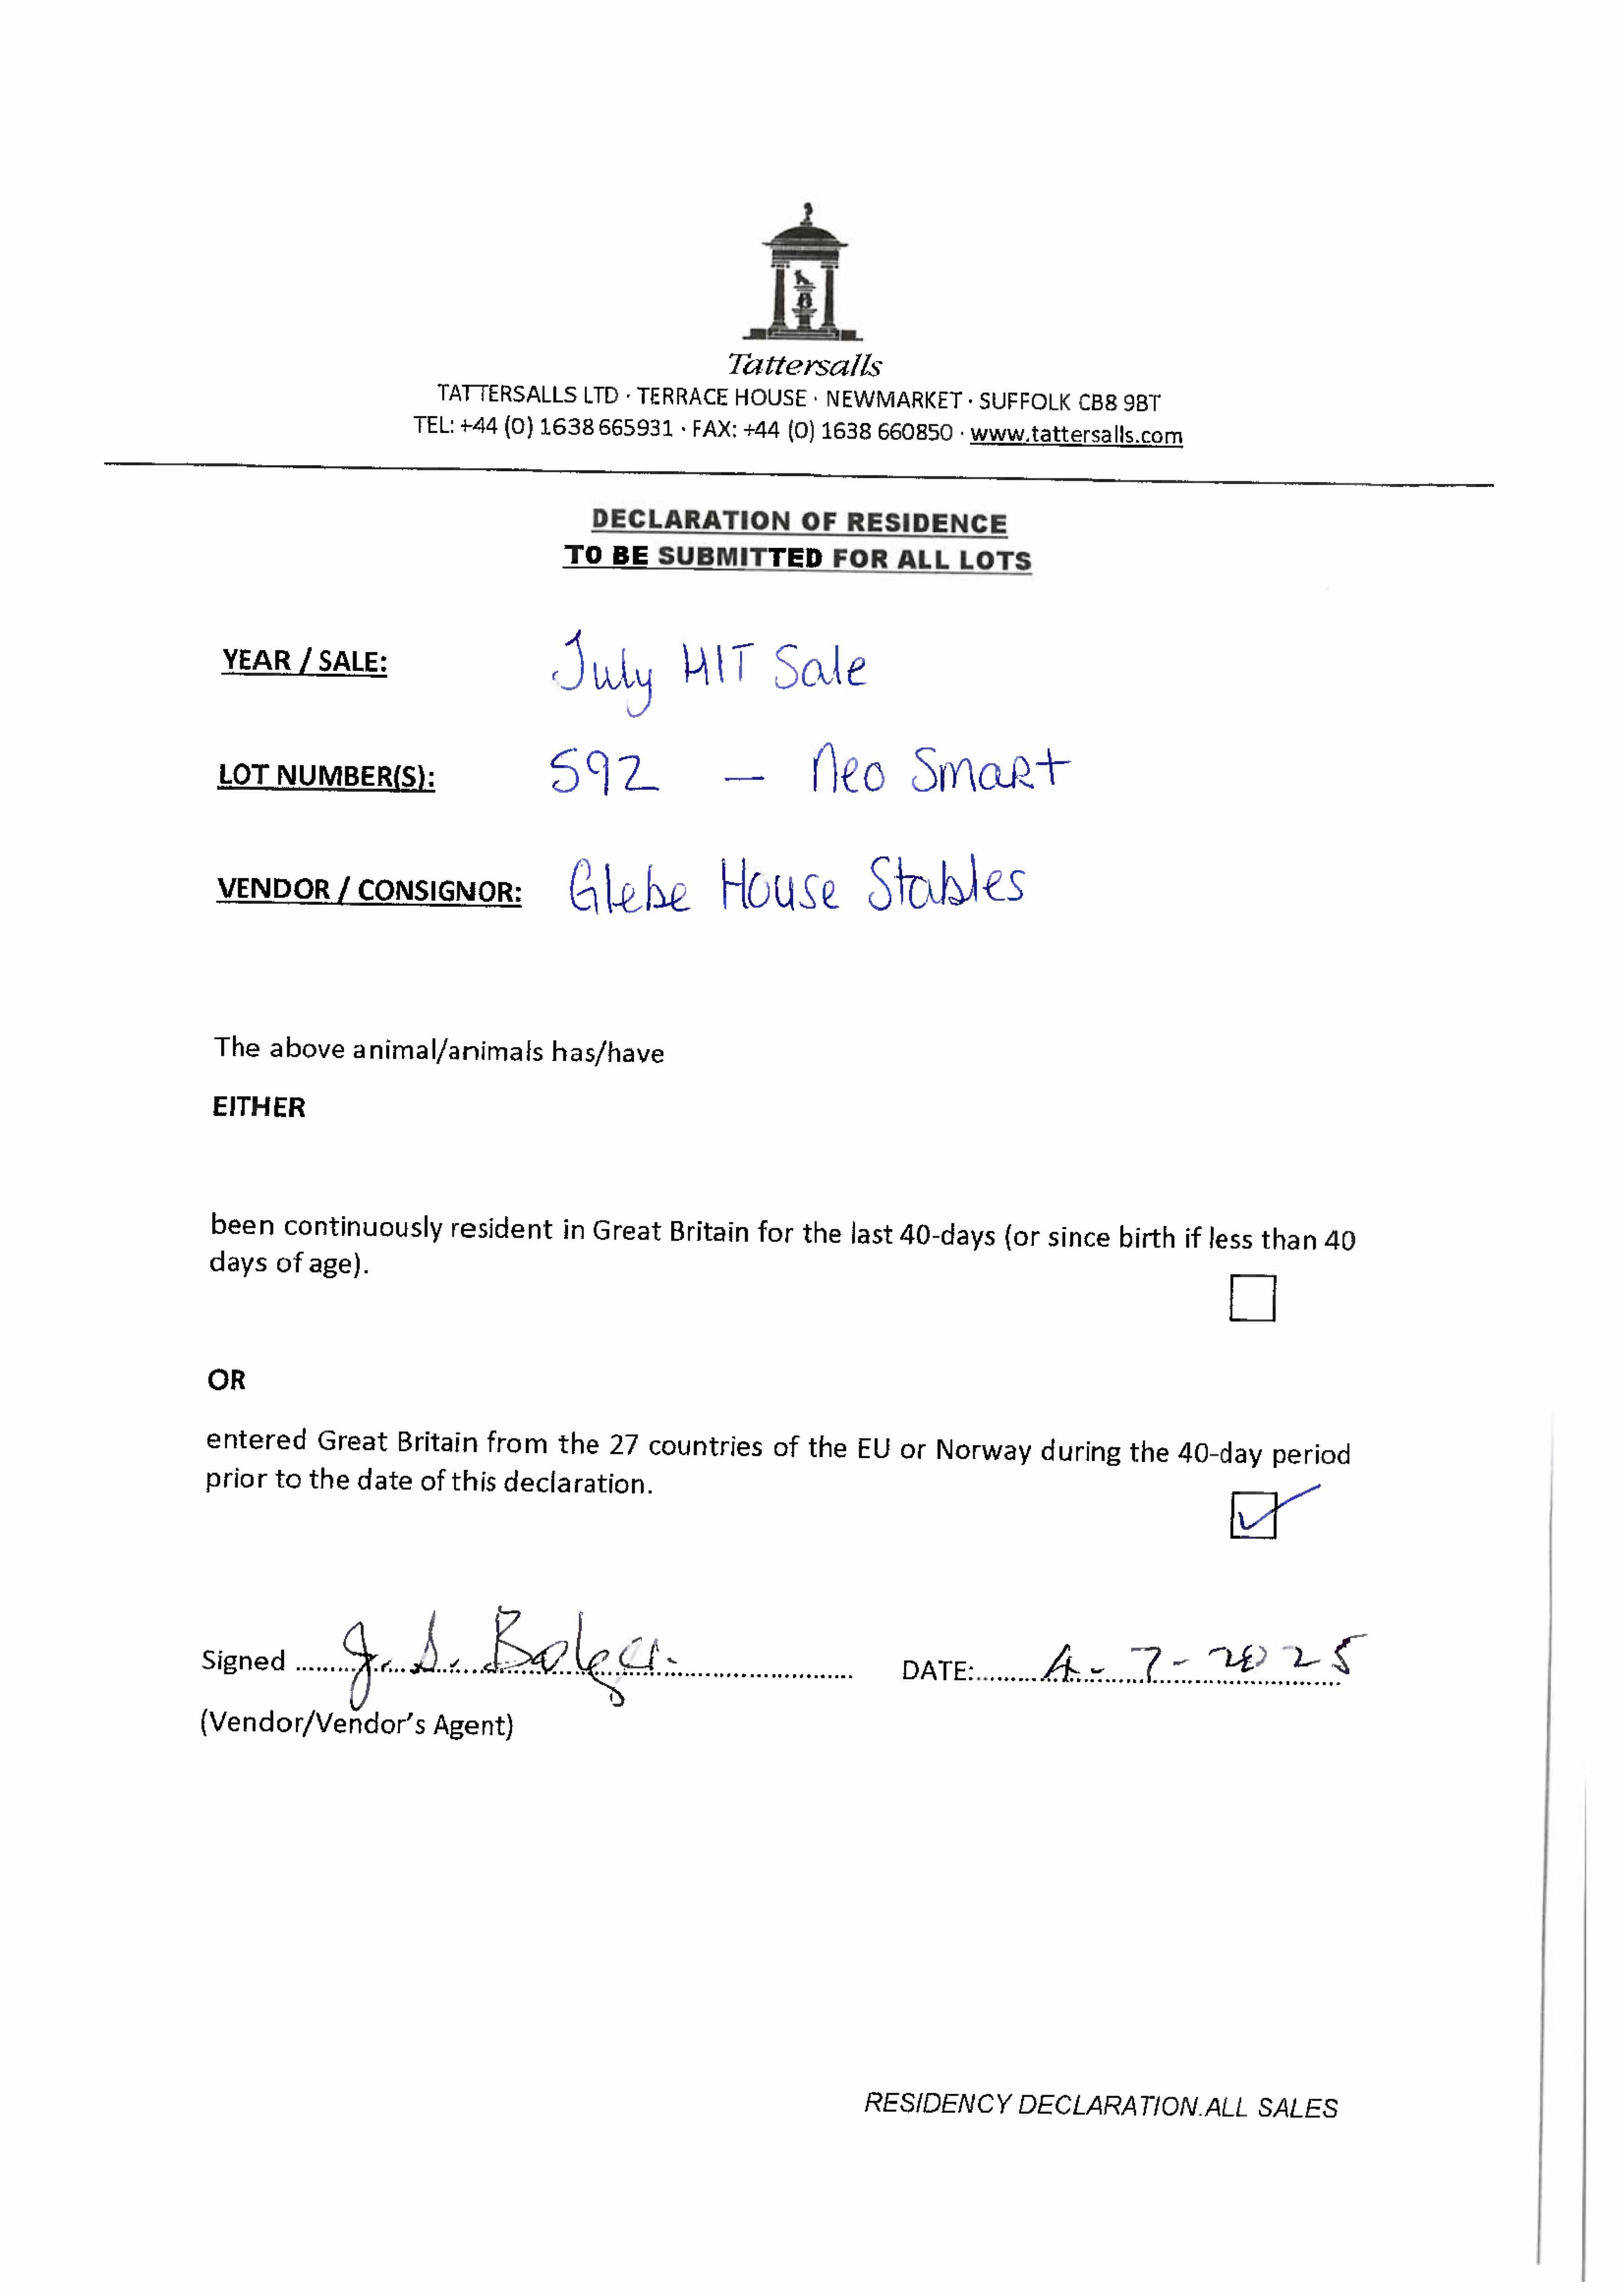 Tattersalls
TATTERSALLS LTD · TERRACE HOUSE · NEWMARKET · SUFFOLK CB8 9BT
TEL: +44 (0) 1638 665931 · FAX: +44 (0) 1638 660850 · www.tattersalls.com
DECLARATION OF RESIDENCE
TO BE SUBMITTED FOR ALL LOTS
YEAR / SALE: July HIT Sale
LOT NUMBER(S): 592 — Neo Smart
VENDOR / CONSIGNOR: Glebe House Stables
The above animal/animals has/have
EITHER
been continuously resident in Great Britain for the last 40-days (or since birth if less than 40
days of age).
OR
entered Great Britain from the 27 countries of the EU or Norway during the 40-day period
prior to the date of this declaration.
Signed J. S. Bolger. DATE: 4-7-2025
(Vendor/Vendor's Agent)
RESIDENCY DECLARATION.ALL SALES